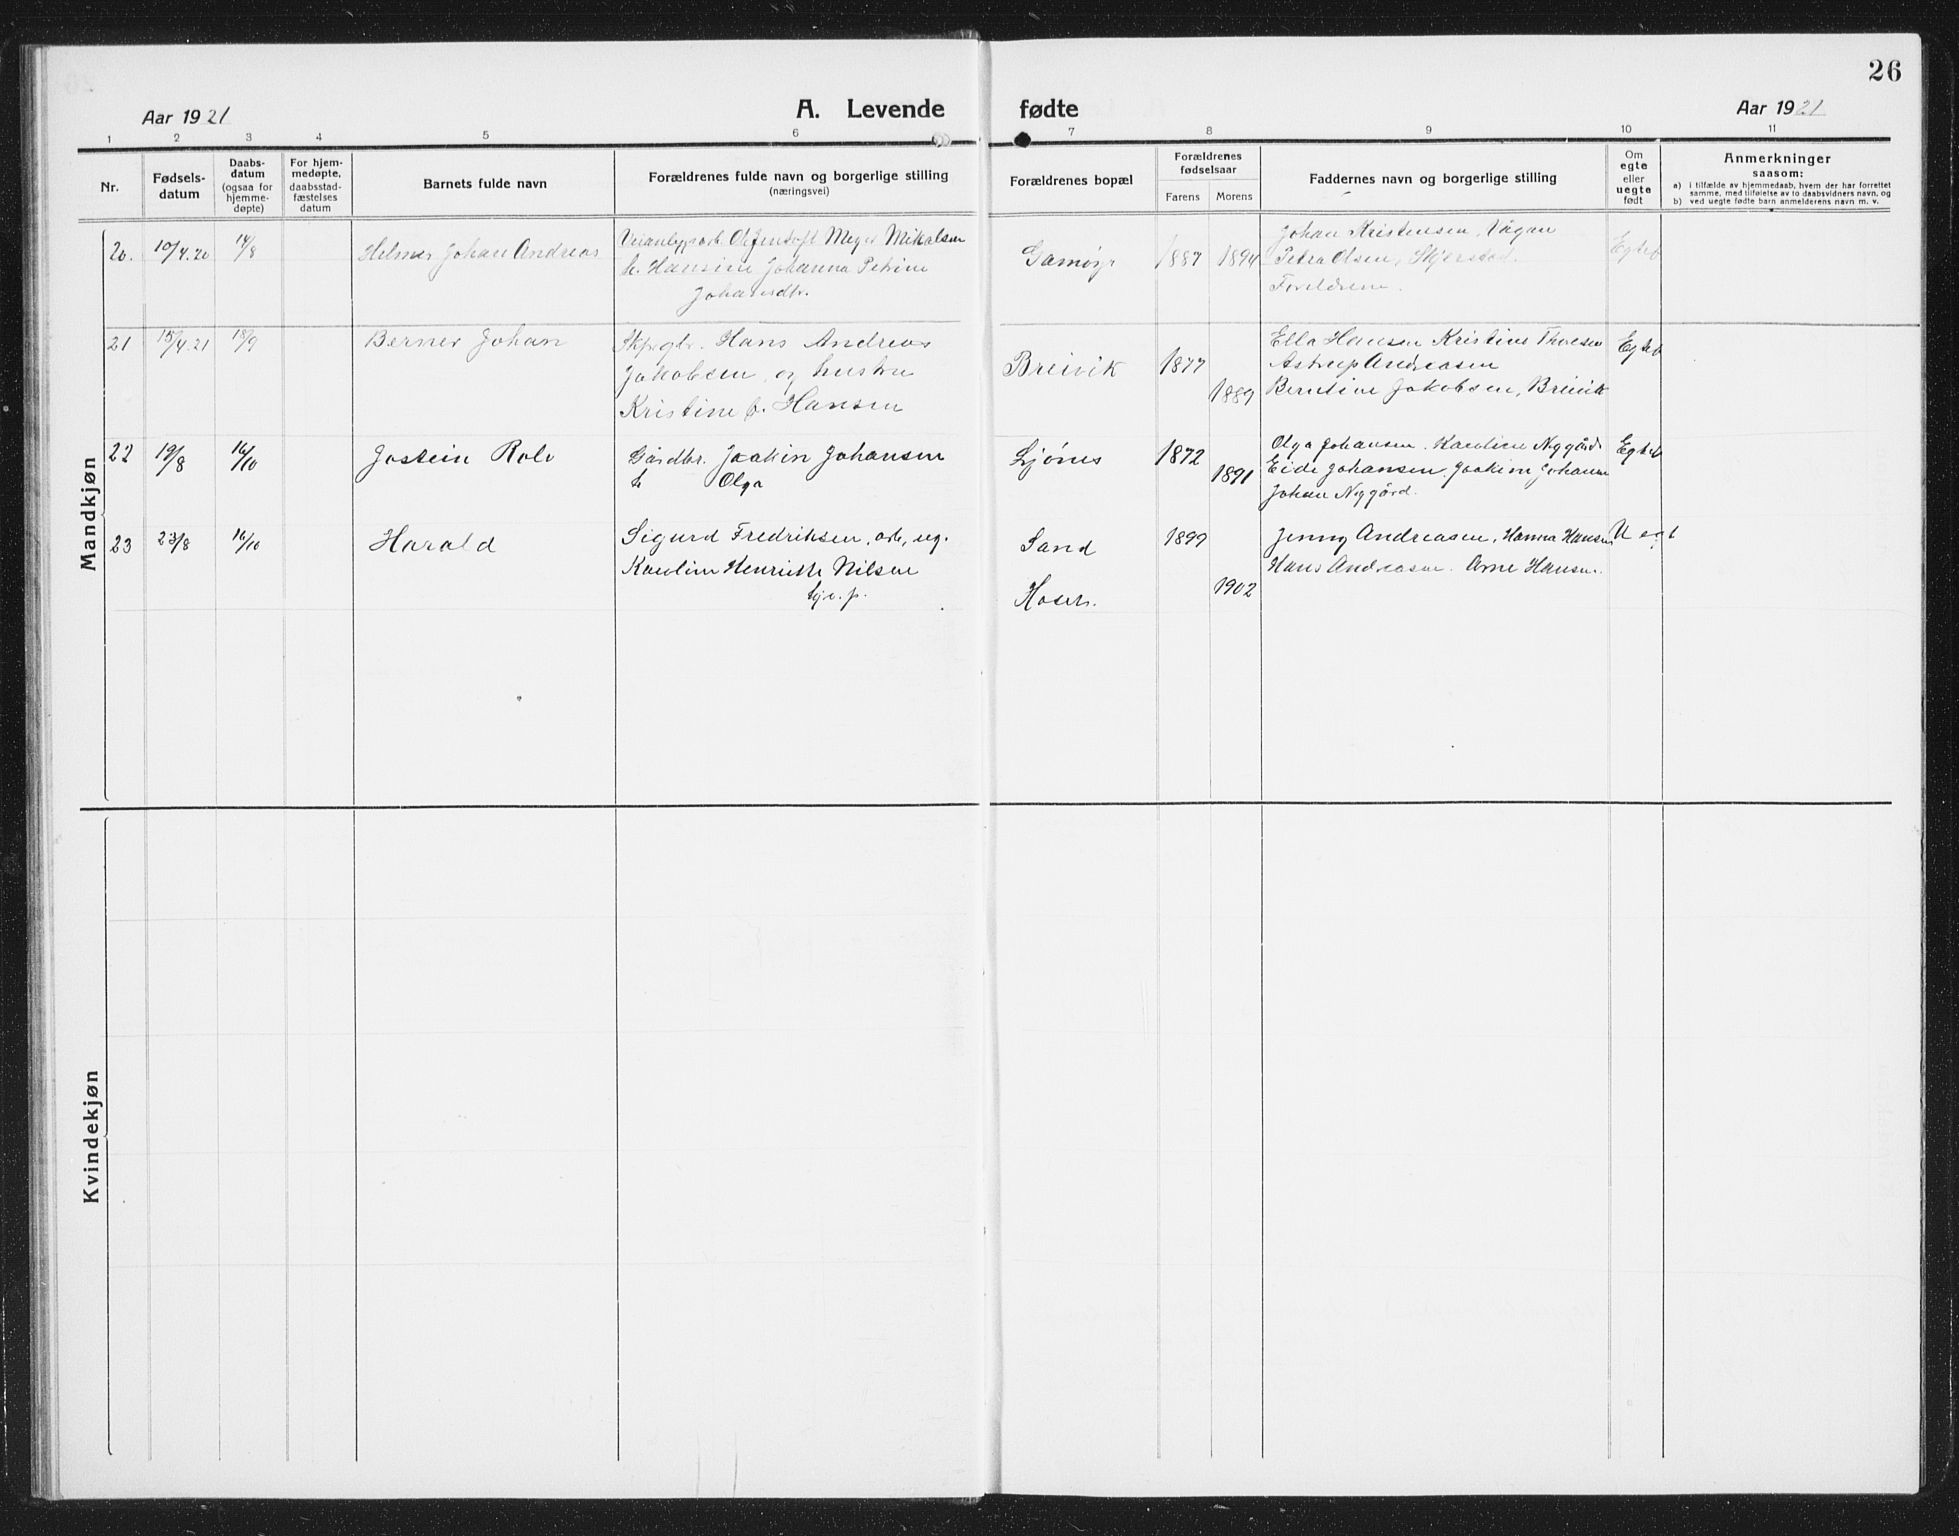 26
Aar 1921 A. Levende fødte Aar 1921
1 2 3 4 5 6 7 8 9 10 11
Nr.
Fødsels-
datum
Daabs-
datum
(ogsaa for
hjemme-
døpte)
For hjem-
medøpte,
daabsstad-
fæstelses
datum
Barnets fulde navn
Forældrenes fulde navn og borgerlige stilling
(næringsvei)
Forældrenes bopæl
Forældrenes
fødselsaar
Farens Morens
Faddernes navn og borgerlige stilling
Om
egte
eller
uegte
født
Anmerkninger
saasom:
a) i tilfælde av hjemmedaab, hvem der har forrettet
samme, med tilføielse av to daabsvidners navn, og
b) ved uegte fødte barn anmelderens navn m. v.
Mandkjøn
20. 10/4.20 14/8
Helmer Johan Andreas
Meyer Mikalsen
h. Hansine Johanna Petrine
Johansdtr.
1887 1894
Johan Kristensen, Vågan
Petra Olsen, Skjerstad.
Foreldrene.
Egtef
21 15/4.21 18/9
Berner Johan
Hans Andreas
Jakobsen og hustru
Kristine f. Hansen
Breivik
1877
1889
Ella Hansen Kristine Thoresen
Astrup Andreasen
Berntine Jakobsen, Breivik
Egtef
22 19/8 16/10
Jostein Rolv
Gårdbr. Joakim Johansen
h. Olga
Ljønes
1872
1891
Olga Johansen. Karoline Nygård.
Eide Johansen. Joakim Johansen
Johan Nygård.
Egtef
23 23/8 16/10
Harald
Sigurd Fredriksen, arb, ug.
Karoline Henriette Nilsen
tje. p.
Sand
1899
1902
Jenny Andreasen, Hanna Hansen
Hans Andreasen. Arne Hansen.
Uegt
Kvindekjøn